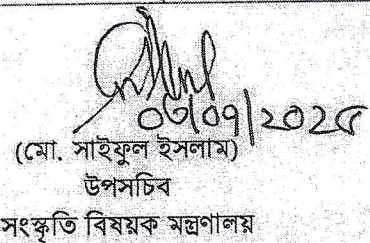 ০৩/০৭/২০২৫
(মো. সাইফুল ইসলাম)
উপসচিব
সংস্কৃতি বিষয়ক মন্ত্রণালয়